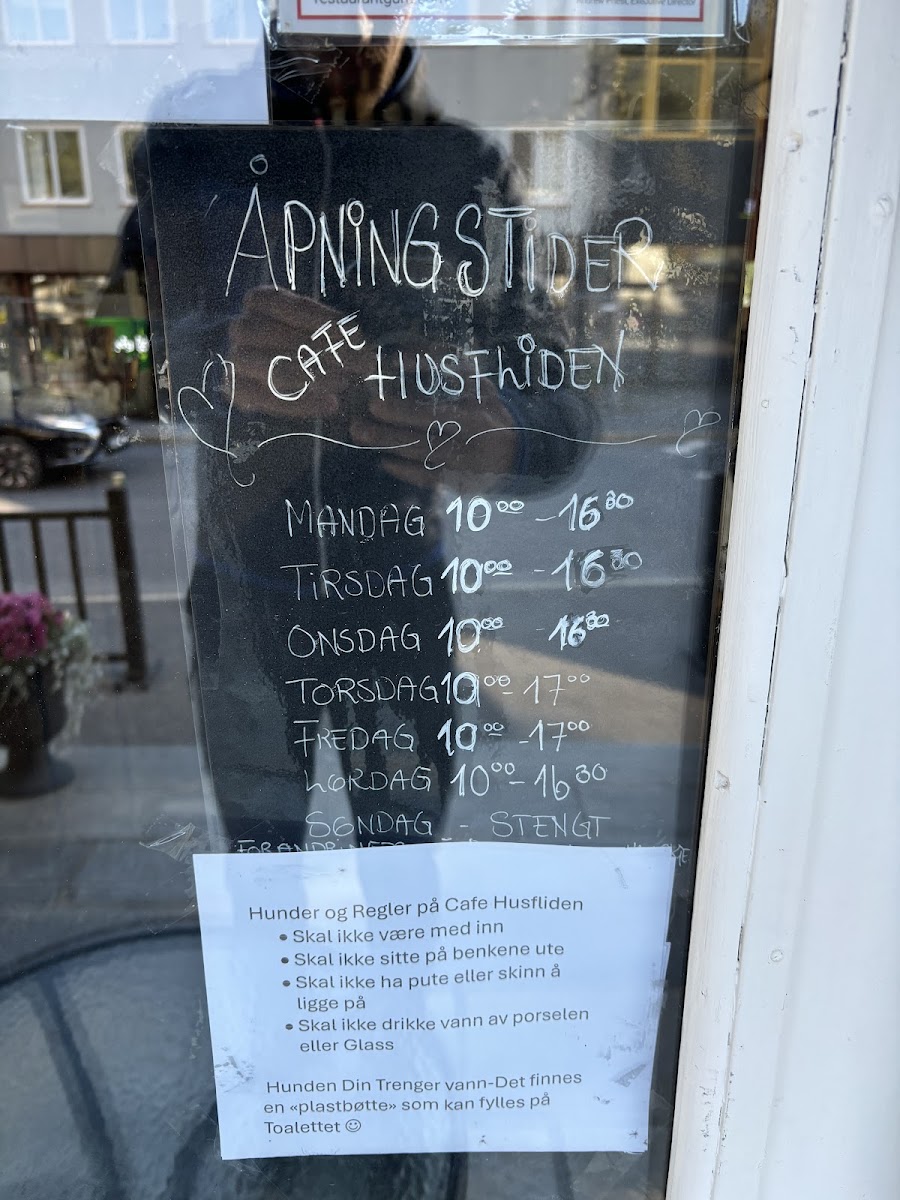 Andrew Priest, Executive Director
ÅPNINGSTIDER
CAFE HUSFLIDEN
MANDAG 10⁰⁰ - 16³⁰
TIRSDAG 10⁰⁰ - 16³⁰
ONSDAG 10⁰⁰ 16³⁰
TORSDAG 10⁰⁰ - 17⁰⁰
FREDAG 10⁰⁰ - 17⁰⁰
LØRDAG 10⁰⁰ - 16³⁰
SØNDAG - STENGT
Hunder og Regler på Cafe Husfliden
• Skal ikke være med inn
• Skal ikke sitte på benkene ute
• Skal ikke ha pute eller skinn å
ligge på
• Skal ikke drikke vann av porselen
eller Glass
Hunden Din Trenger vann-Det finnes
en «plastbøtte» som kan fylles på
Toalettet ☺